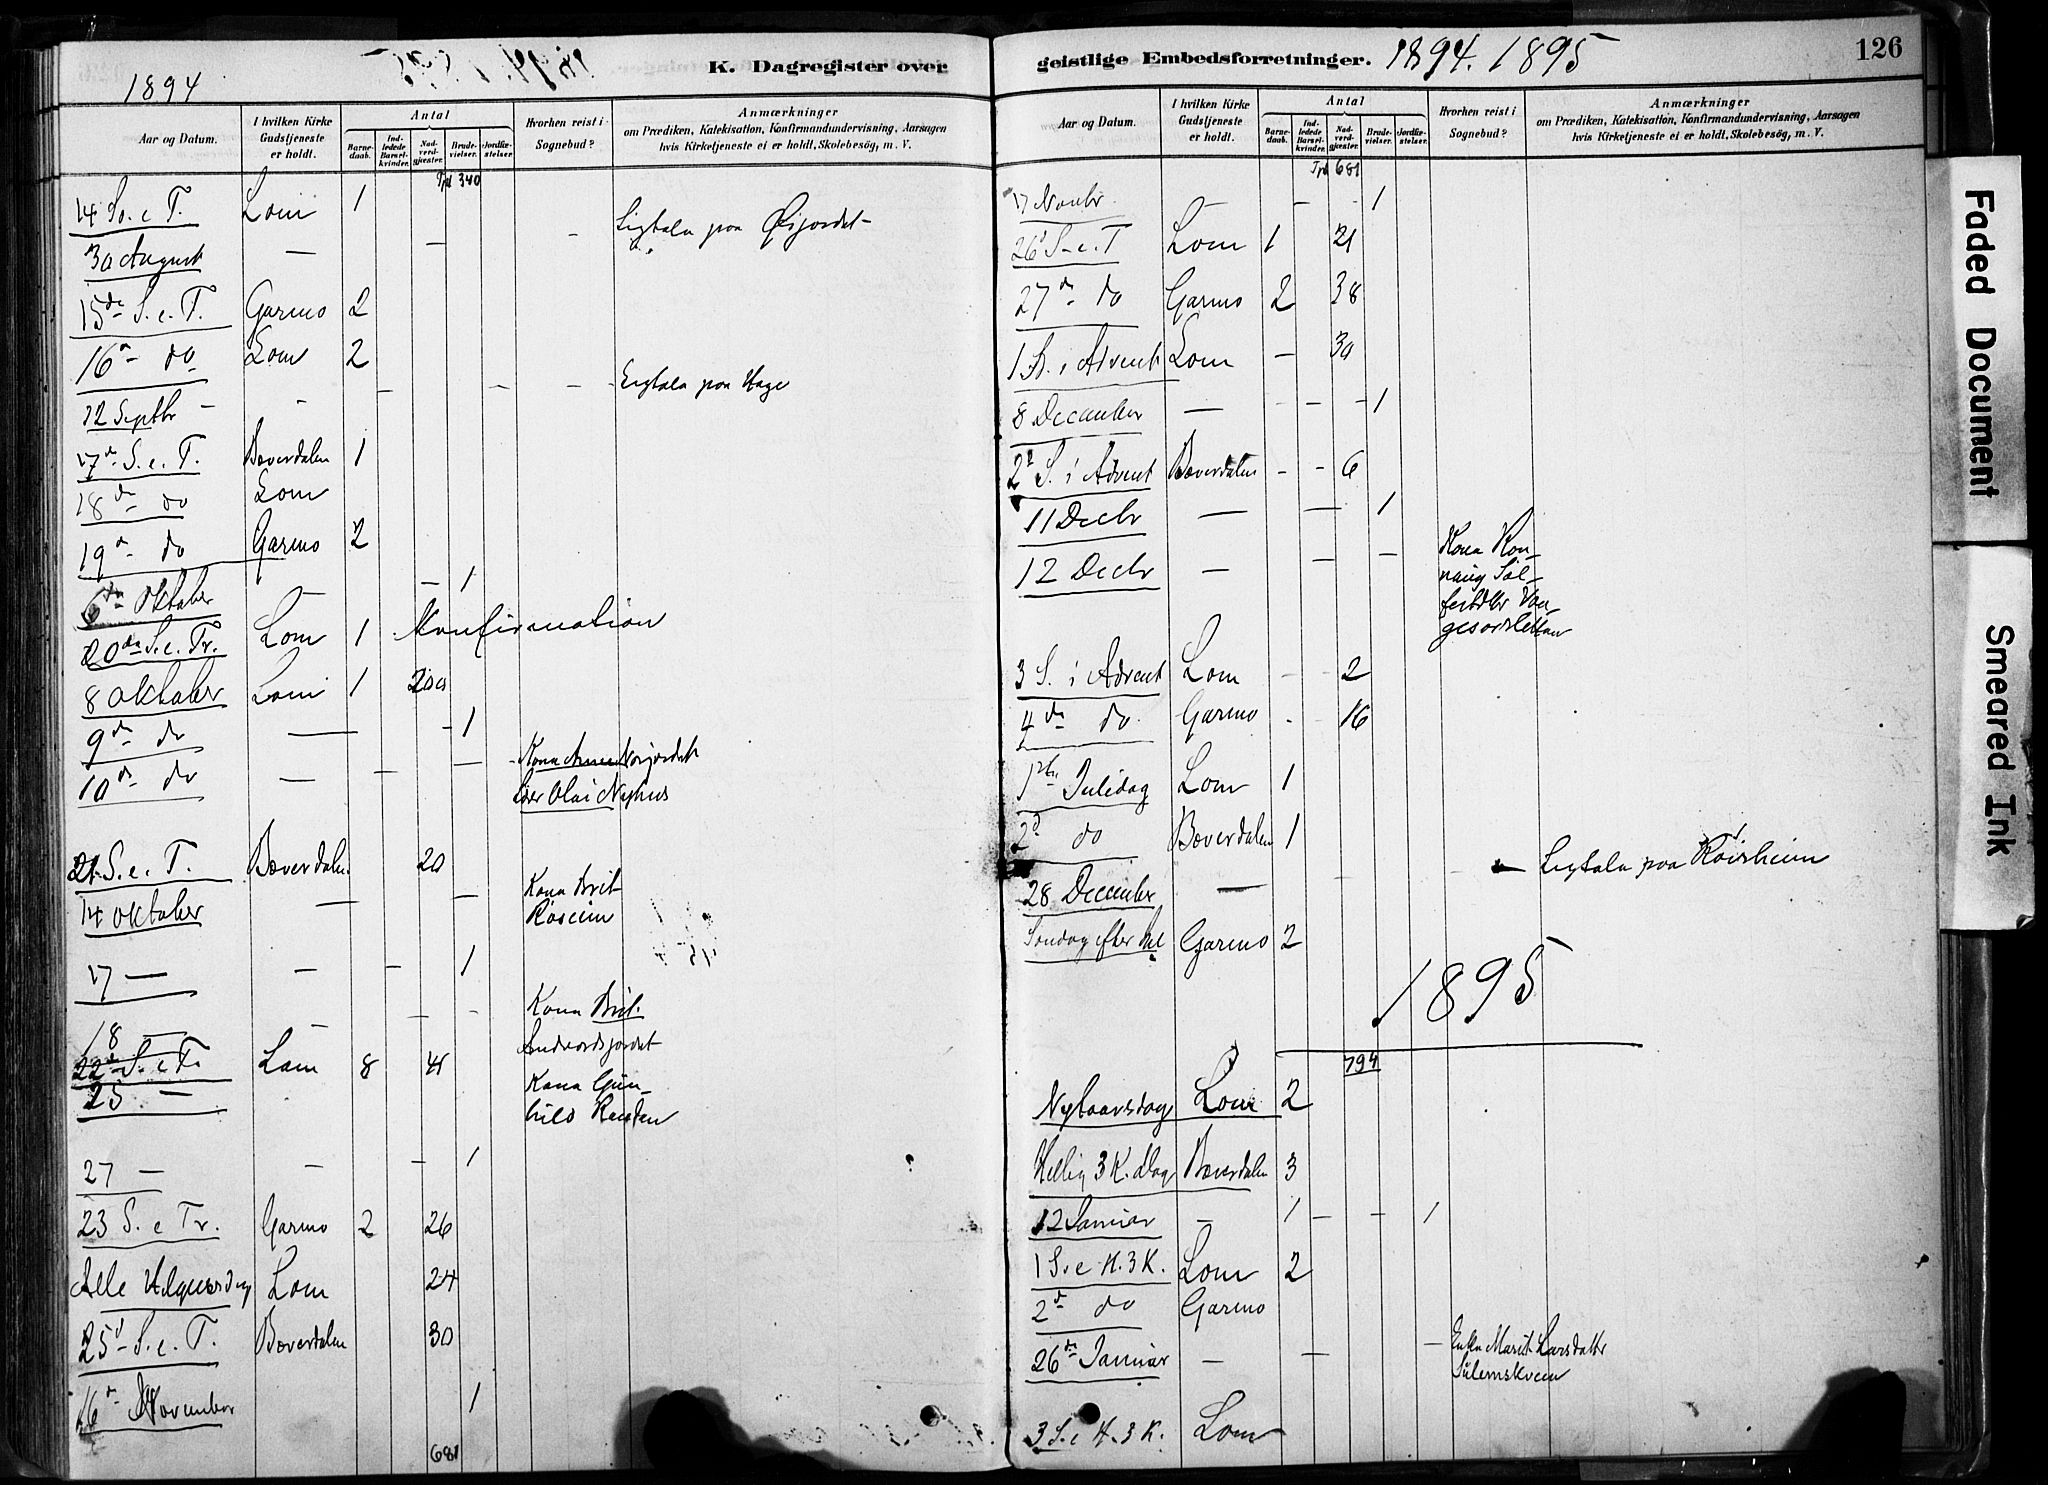 1894
K. Dagregister over
Aar og Datum. I hvilken Kirke Gudstjeneste er holdt. Antal Barnedaab. Indledede Barselkvinder. Nadverdgjæster. Brudevielser. Jordfæstelser. Hvorhen reist i Sognebud? Anmærkninger om Prædiken, Katekisation, Konfirmandundervisning, Aarsagen hvis Kirketjeneste ei er holdt, Skolebesög, m. V.
340
14 So. e T. Lom 1
30 August — — - Ligtale paa Øijordet
15de S. e. T. Garmo 2
16d do Lom 2
12 Septbr - - - - - Ligtale paa Hage
17d S. e. T. Bæverdalen 1
18de do Lom
19d do Garmo 2
6te Oktober — 1
20de S. e. Tr. Lom 1 Konfirmation
8 Oktober Lom 1 200
9de do — - 1
10de do — - — Kona
Olai Nyhus
21. S. e. T. Bæverdalen 20
14 Oktober — — Kona Brit
Røseim
17 — — - 1
18 — — - - Kona Brit
Andvordsjordet
22d S. e Tr. Lom 8
25 — Kona Gun-
hild
27 — — - 1
23 S. e Tr. Garmo 2 26
Alle Helgensdag Lom 24
25d S. e. T. Bæverdalen 30
16de November 1
681
geistlige Embedsforretninger. 1894. 1895
126
Aar og Datum. I hvilken Kirke Gudstjeneste er holdt. Antal Barnedaab. Indledede Barselkvinder. Nadverdgjæster. Brudevielser. Jordfæstelser. Hvorhen reist i Sognebud? Anmærkninger om Prædiken, Katekisation, Konfirmandundervisning, Aarsagen hvis Kirketjeneste ei er holdt, Skolebesög, m. V.
681
17 Novbr. — - - 1
26d S. e. T Lom 1 21
27de do Garmo 2 38
1 S. i Advent Lom - 30
8 December — - - 1
2d S. i Advent Bæverdalen - - 6
11 Decbr — — 1
12 Decbr — — — Kona Ron-
naug Sül-
festdtr Vaa-
3 S. i Advent Lom - - 2
4de do Garmo - 16
1ste Juledag Lom 1
2d do Bæverdalen 1
28 December — - - - — Ligtale paa Røisheim
Søndag efter Jul Garmo 2
1895
794
Nytaarsdag Lom 2
Hellig 3 K. dag Bæverdalen 3
12 Januar - 1 - - 1
1 S. e H. 3 K. Lom 2
2d do Garmo
26de Januar — — — Enke Marit Larsdatter
Sülemskveen
3 S. e H. 3 K. Lom
Faded Document
Smeared Ink